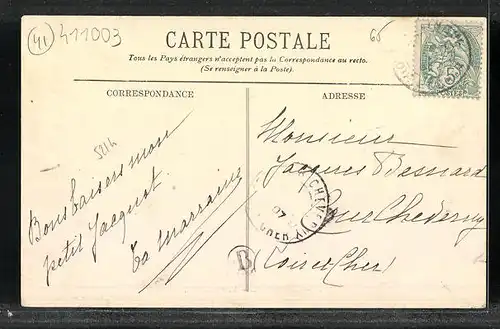 41
411003
CARTE POSTALE
Tous les Pays étrangers n'acceptent pas la Correspondance au recto.
(Se renseigner à la Poste).
CORRESPONDANCE
ADRESSE
Bons baisers mon
petit Jacquot
Ta Marraine
Monsieur
Jacques Besnard
Cour Cheverny
(Loir et Cher)
CHEVERNY
07
CHER
B